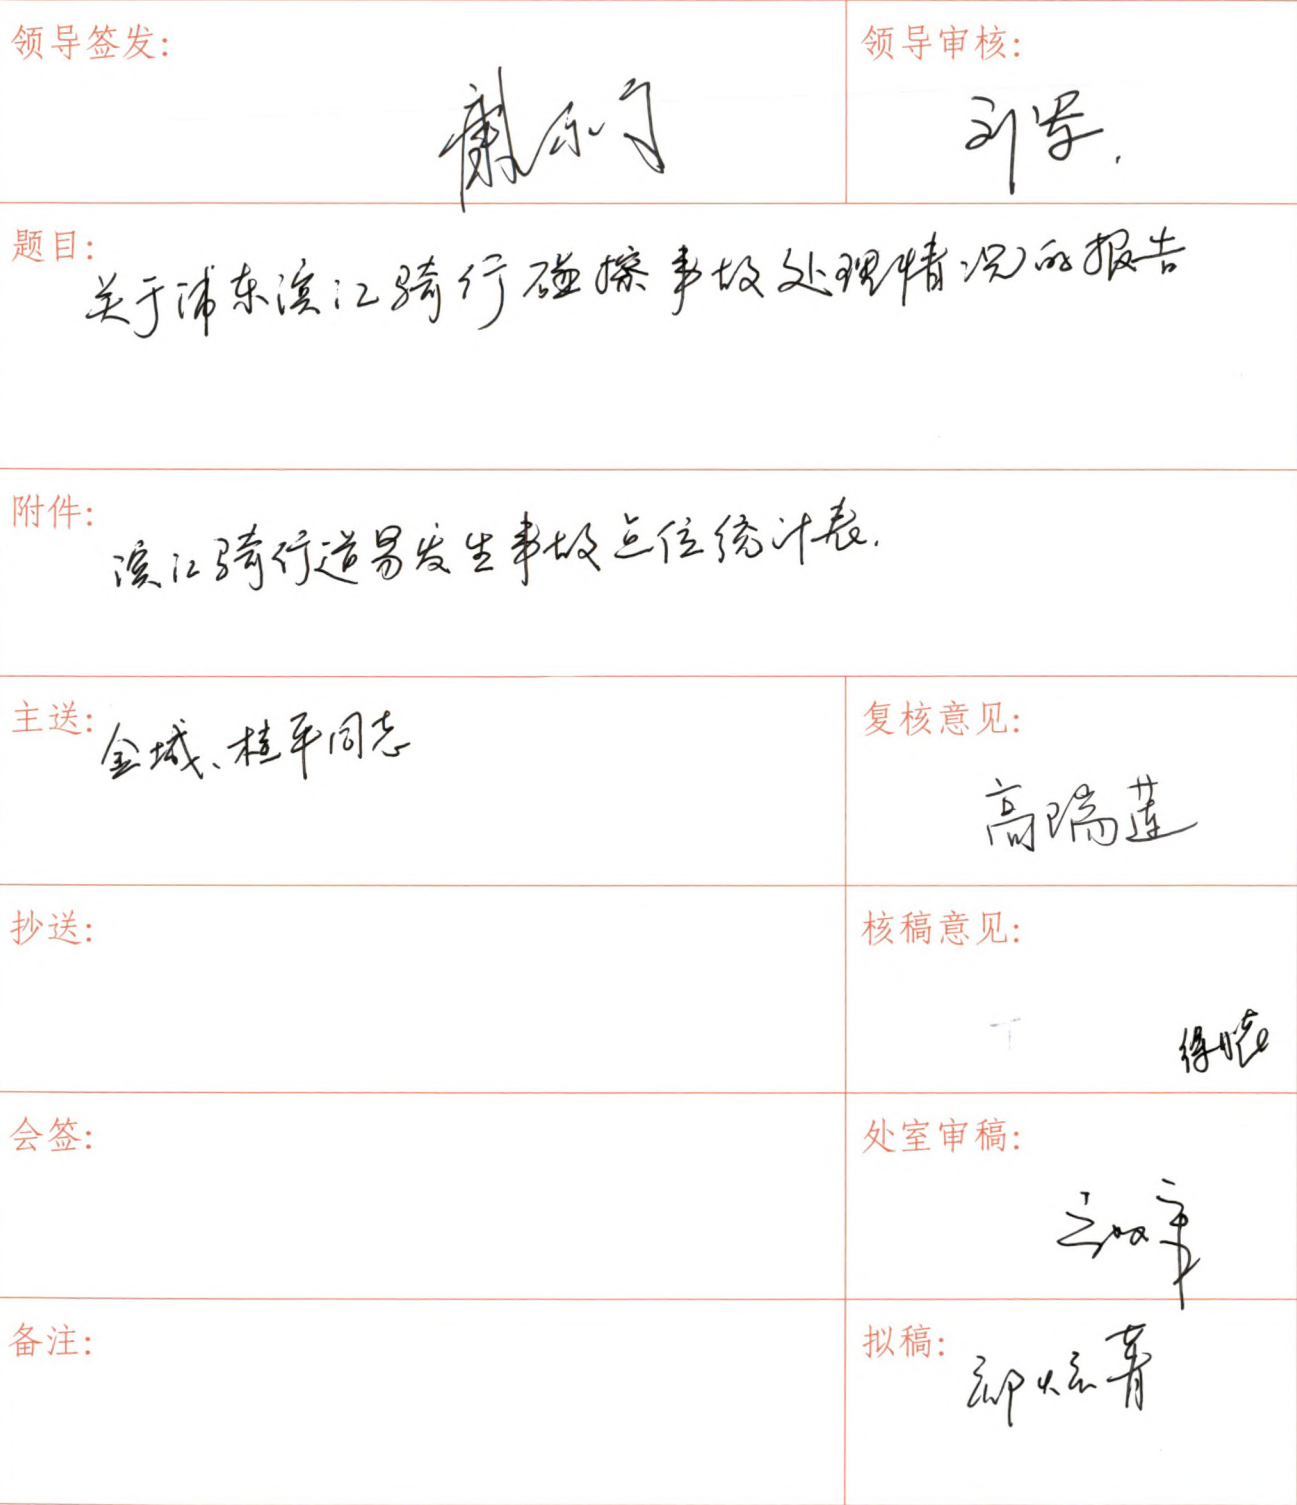 领导签发:
领导审核:
刘军
题目:
关于浦东滨江骑行碰擦事故处理情况的报告
附件:
滨江骑行道易发生事故点位统计表.
主送:
金城、桂平同志
复核意见:
高瑞莲
抄送:
核稿意见:
会签:
处室审稿:
备注:
拟稿: